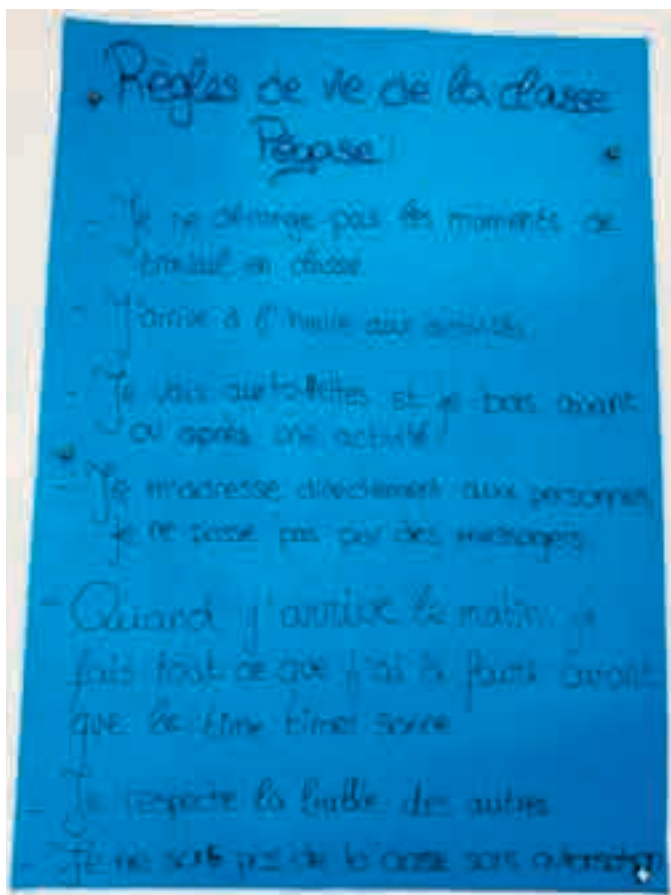 Règles de vie de la classe
Pégase
- Je ne dérange pas les moments de
travail en classe
- J'arrive à l'heure aux activités
- Je vais aux toilettes et je bois avant
ou après une activité
- Je m'adresse directement aux personnes
je ne passe pas par des messages
- Quand j'arrive le matin je
fais tout ce que j'ai à faire avant
que le time timer sonne
- Je respecte la des autres
- Je ne sort pas de la classe sans autorisation